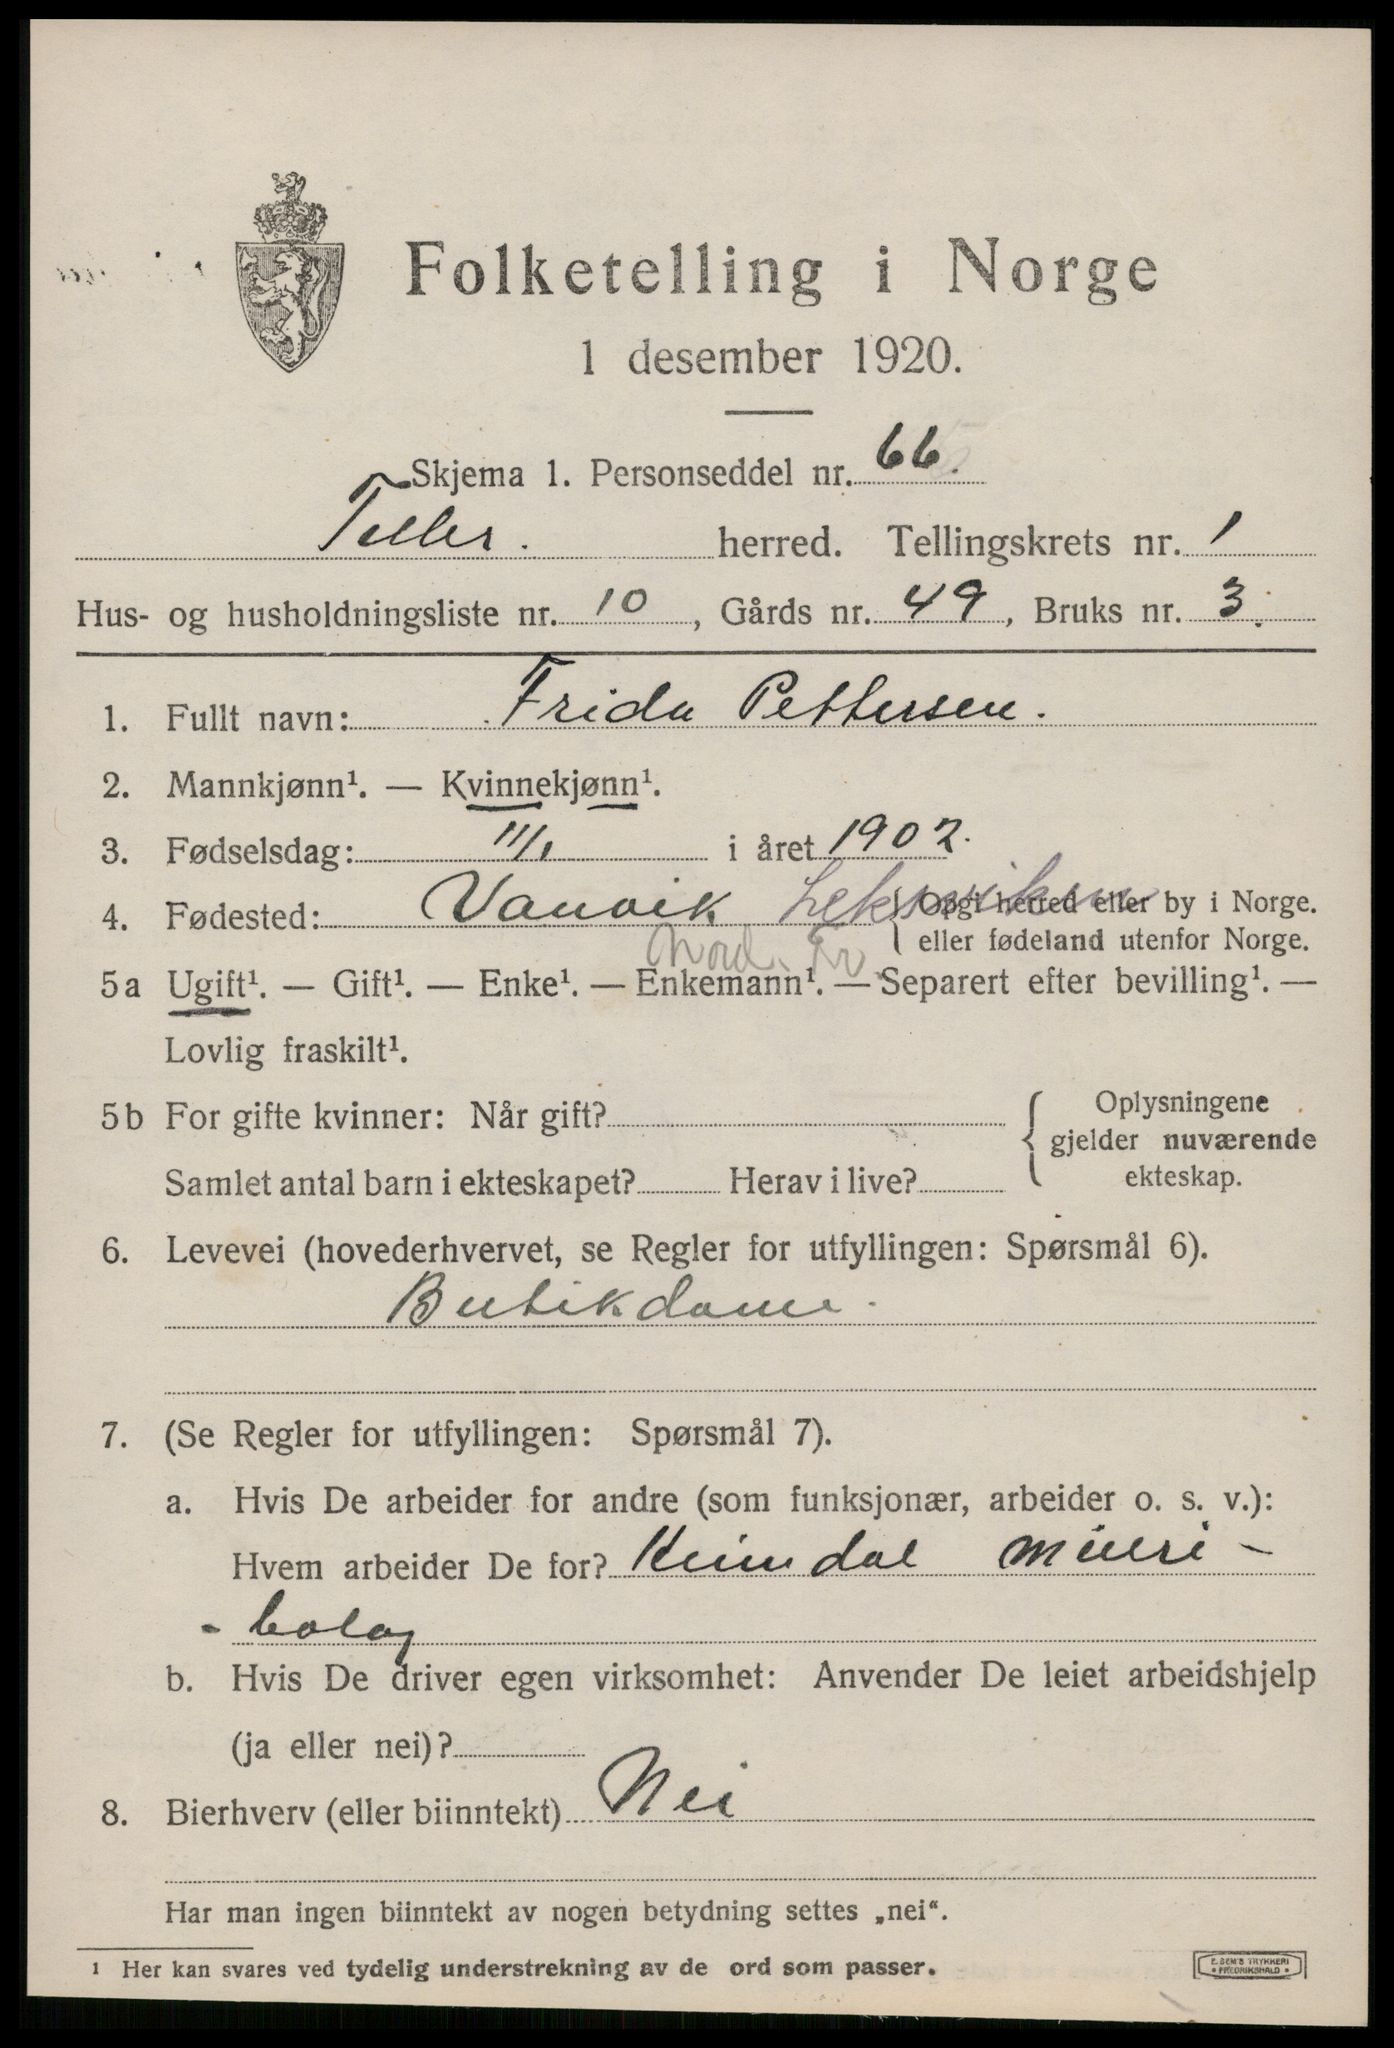 Folketelling i Norge
1 desember 1920.
Skjema 1. Personseddel nr. 66.
Tiller. herred. Tellingskrets nr. 1
Hus- og husholdningsliste nr. 10, Gårds nr. 49, Bruks nr. 3.
1. Fullt navn: Frida Pettersen.
2. Mannkjønn¹. — Kvinnekjønn¹.
3. Fødselsdag: 11/1 i året 1902.
4. Fødested: Vanvik Leksviken { Opgi herred eller by i Norge.
eller fødeland utenfor Norge.
Nord. Tr.
5a Ugift¹. — Gift¹. — Enke¹. — Enkemann¹. — Separert efter bevilling¹. —
Lovlig fraskilt¹.
5b For gifte kvinner: Når gift?
Samlet antal barn i ekteskapet? Herav i live?
{ Oplysningene
gjelder nuværende
ekteskap.
6. Levevei (hovederhvervet, se Regler for utfyllingen: Spørsmål 6).
Butikdame.
7. (Se Regler for utfyllingen: Spørsmål 7).
a. Hvis De arbeider for andre (som funksjonær, arbeider o. s. v.):
Hvem arbeider De for? Heimdal Mieri -
- bolag
b. Hvis De driver egen virksomhet: Anvender De leiet arbeidshjelp
(ja eller nei)?
8. Bierhverv (eller biinntekt) Nei
Har man ingen biinntekt av nogen betydning settes „nei“.
¹ Her kan svares ved tydelig understrekning av de ord som passer.
E. SEM'S TRYKKERI
• FREDRIKSHALD •